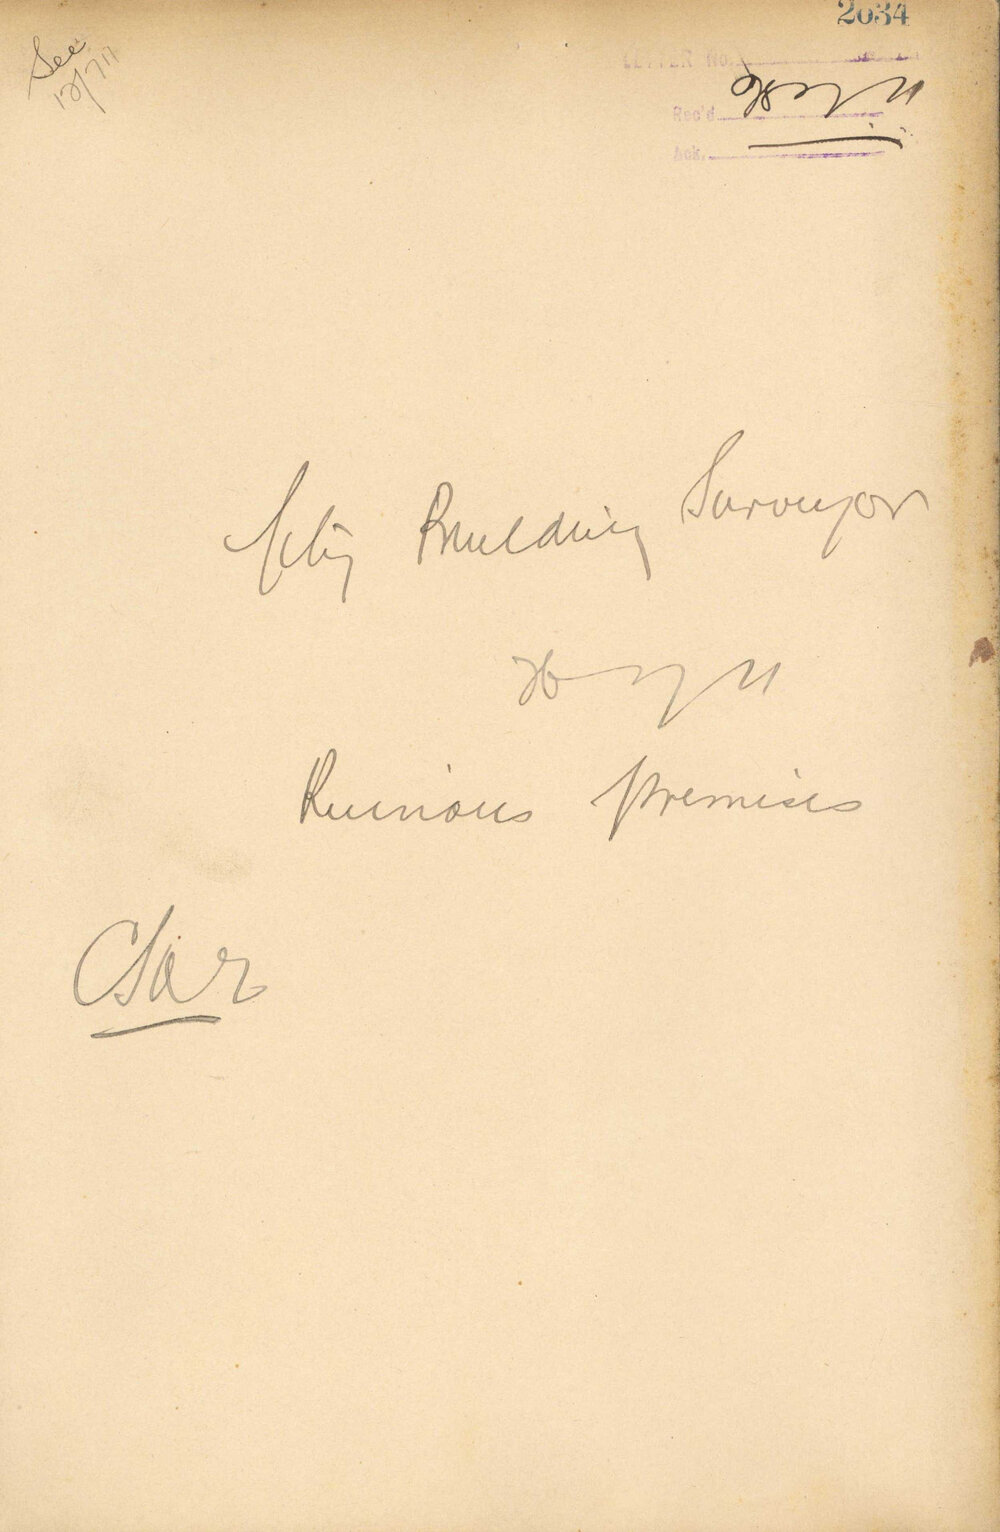 2034
See
12/7/11
LETTER No.
26/7/11
Rec'd
Ack.
City Building Surveyor
26/7/11
Ruinous premises